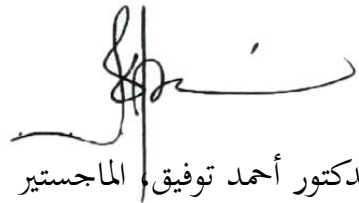 دكتور أحمد توفيق، الماجستير